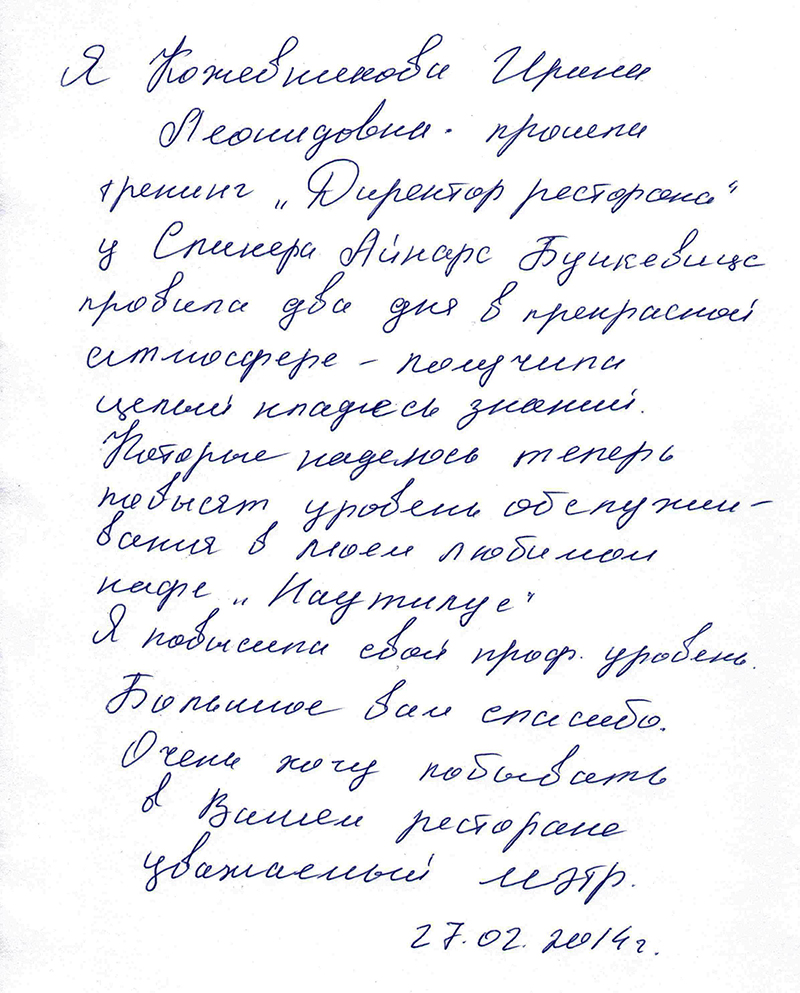 Я Кожевникова Ирина
Леонидовна. прошла
тренинг „Директор ресторана“
у Спикера Айнарс Бункевицс
провила два дня в прекрасной
атмосфере – получила
целый кладезь знаний.
Которые надеюсь теперь
повысят уровень обслужи–
вания в моем любимом
кафе „Наутилус“
Я повысила свой проф. уровень.
Большое вам спасибо.
Очень хочу побывать
в Вашем ресторане
уважаемый мэтр.
27.02.2014г.